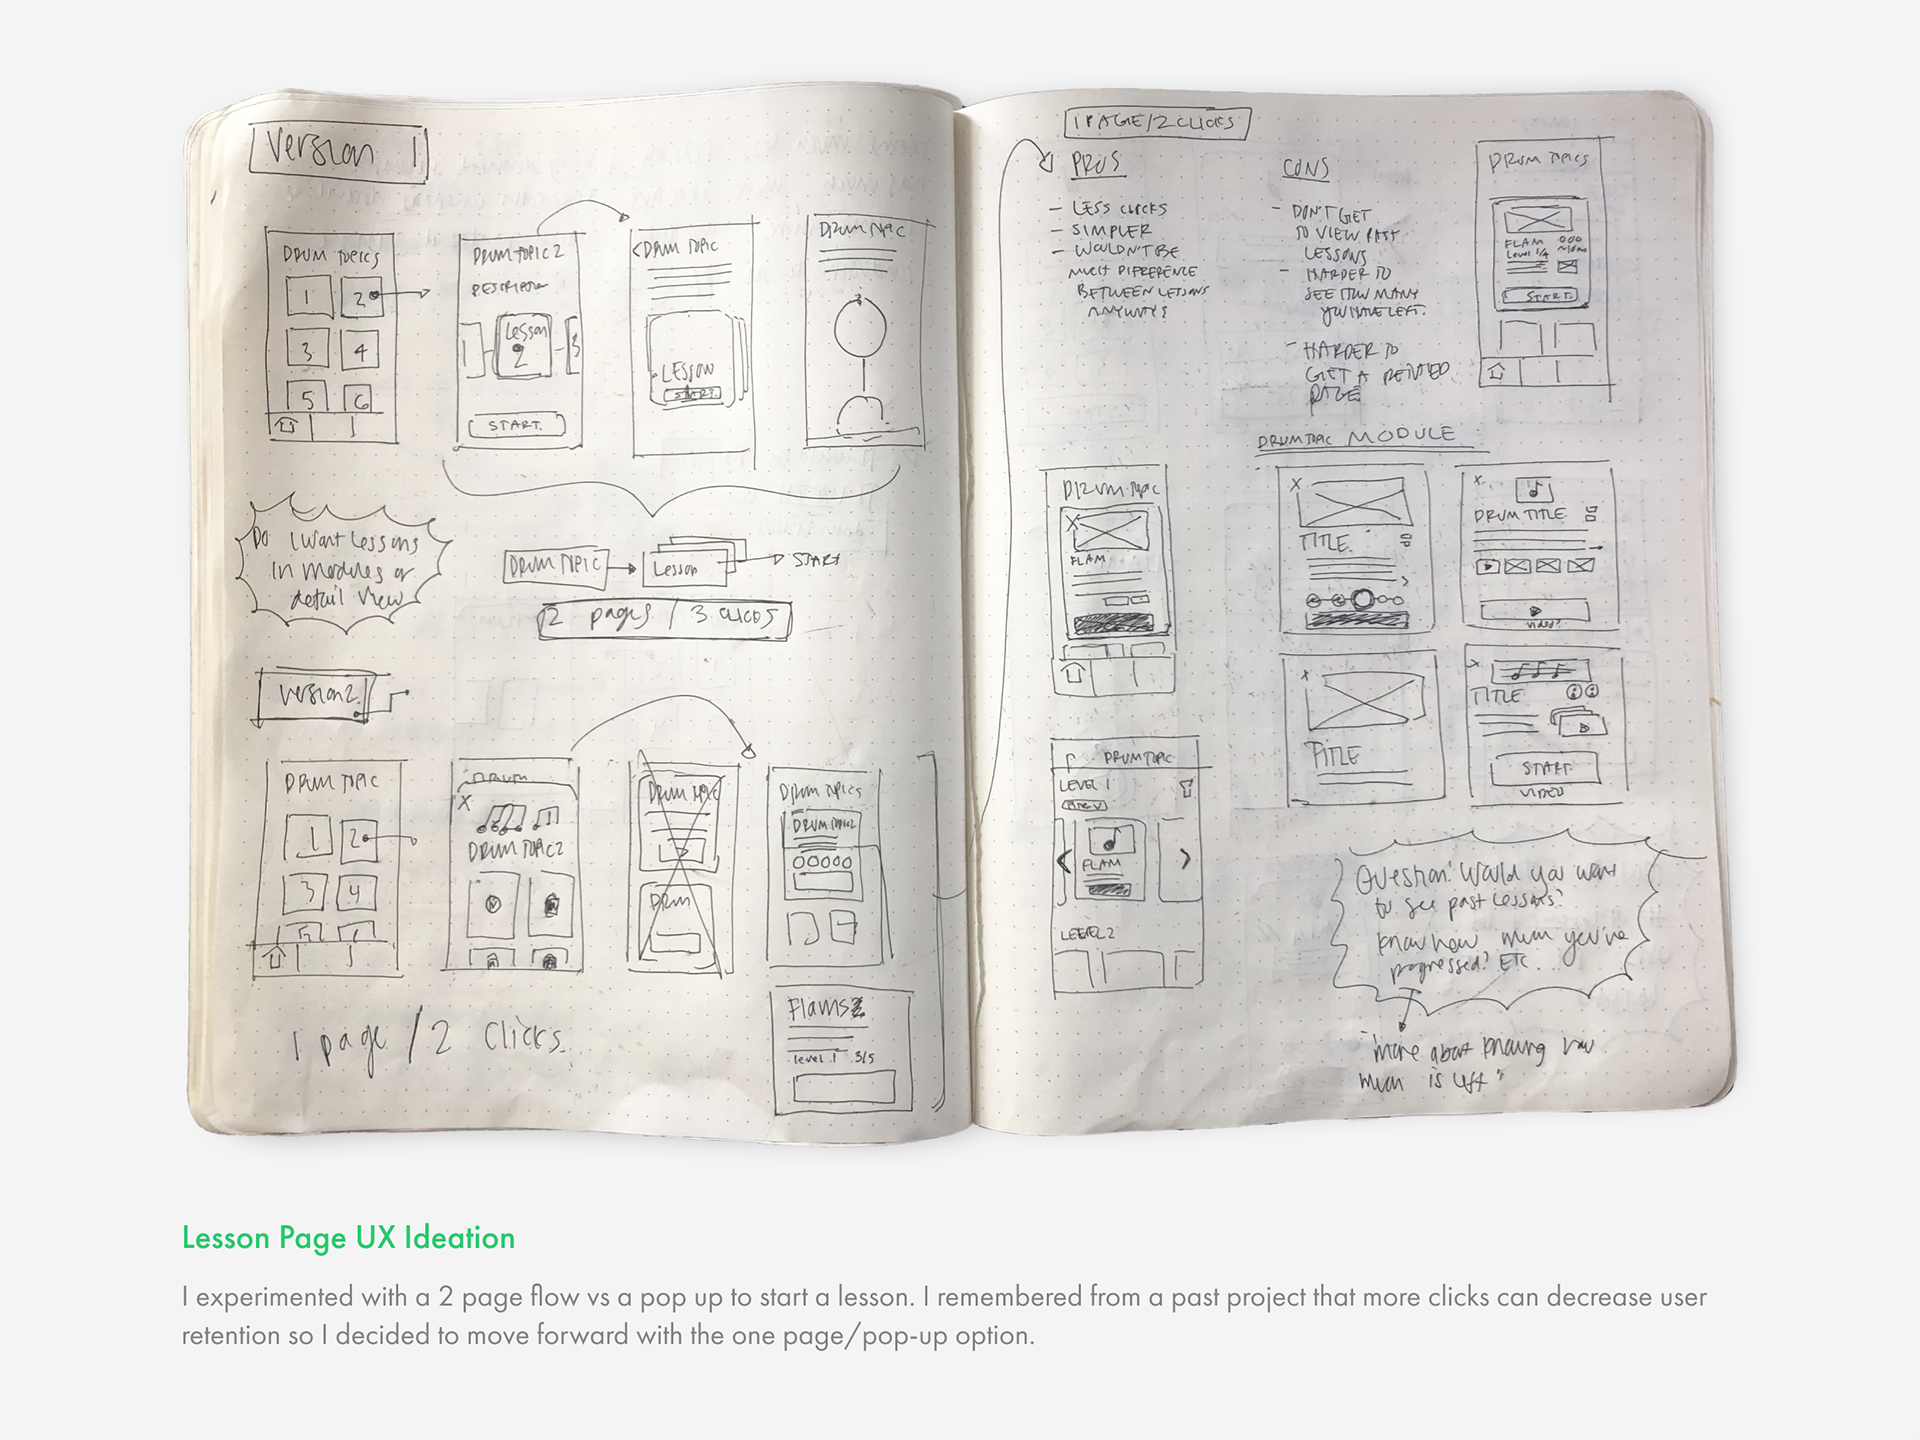 Version 1
DRUM TOPICS
1 2
3 4
5 6
DRUM TOPIC 2
DESCRIPTION
1 Lesson 3
2
START.
<DRUM TOPIC
LESSON
START.
DRUM TOPIC
DO I want Lessons
in modules or
detail view
DRUM TOPIC
Lesson
START
2 pages / 3 CLICKS
Version 2
DRUM TOPIC
1 2
3 4
5 6
DRUM
X
DRUM TOPIC 2
DRUM TOPIC
DRUM
DRUM TOPICS
DRUM TOPIC 2
Flams
level 1 3/5
1 page / 2 Clicks.
1 PAGE/2 CLICKS
PROS
- LESS CLICKS
- SIMPLER
- WOULDN'T BE
MUCH DIFFERENCE
BETWEEN LESSONS
ANYWAYS
CONS
- DON'T GET
TO VIEW PAST
LESSONS
- HARDER TO
SEE HOW MANY
YOU HAVE LEFT.
- HARDER TO
GET A DETAILED
PAGE
DRUM TOPICS
FLAM
Level 1/4
START.
DRUM TOPIC MODULE
DRUM TOPIC
X
FLAM
X
TITLE
X
DRUM TITLE
VIDEO?
X
TITLE
TITLE
START.
VIDEO
DRUM TOPIC
LEVEL 1
FLAM
LEVEL 2
Question: Would you want
to see past lessons?
Know how much you've
progressed? ETC.
"more about knowing how
much is left"
Lesson Page UX Ideation
I experimented with a 2 page flow vs a pop up to start a lesson. I remembered from a past project that more clicks can decrease user
retention so I decided to move forward with the one page/pop-up option.